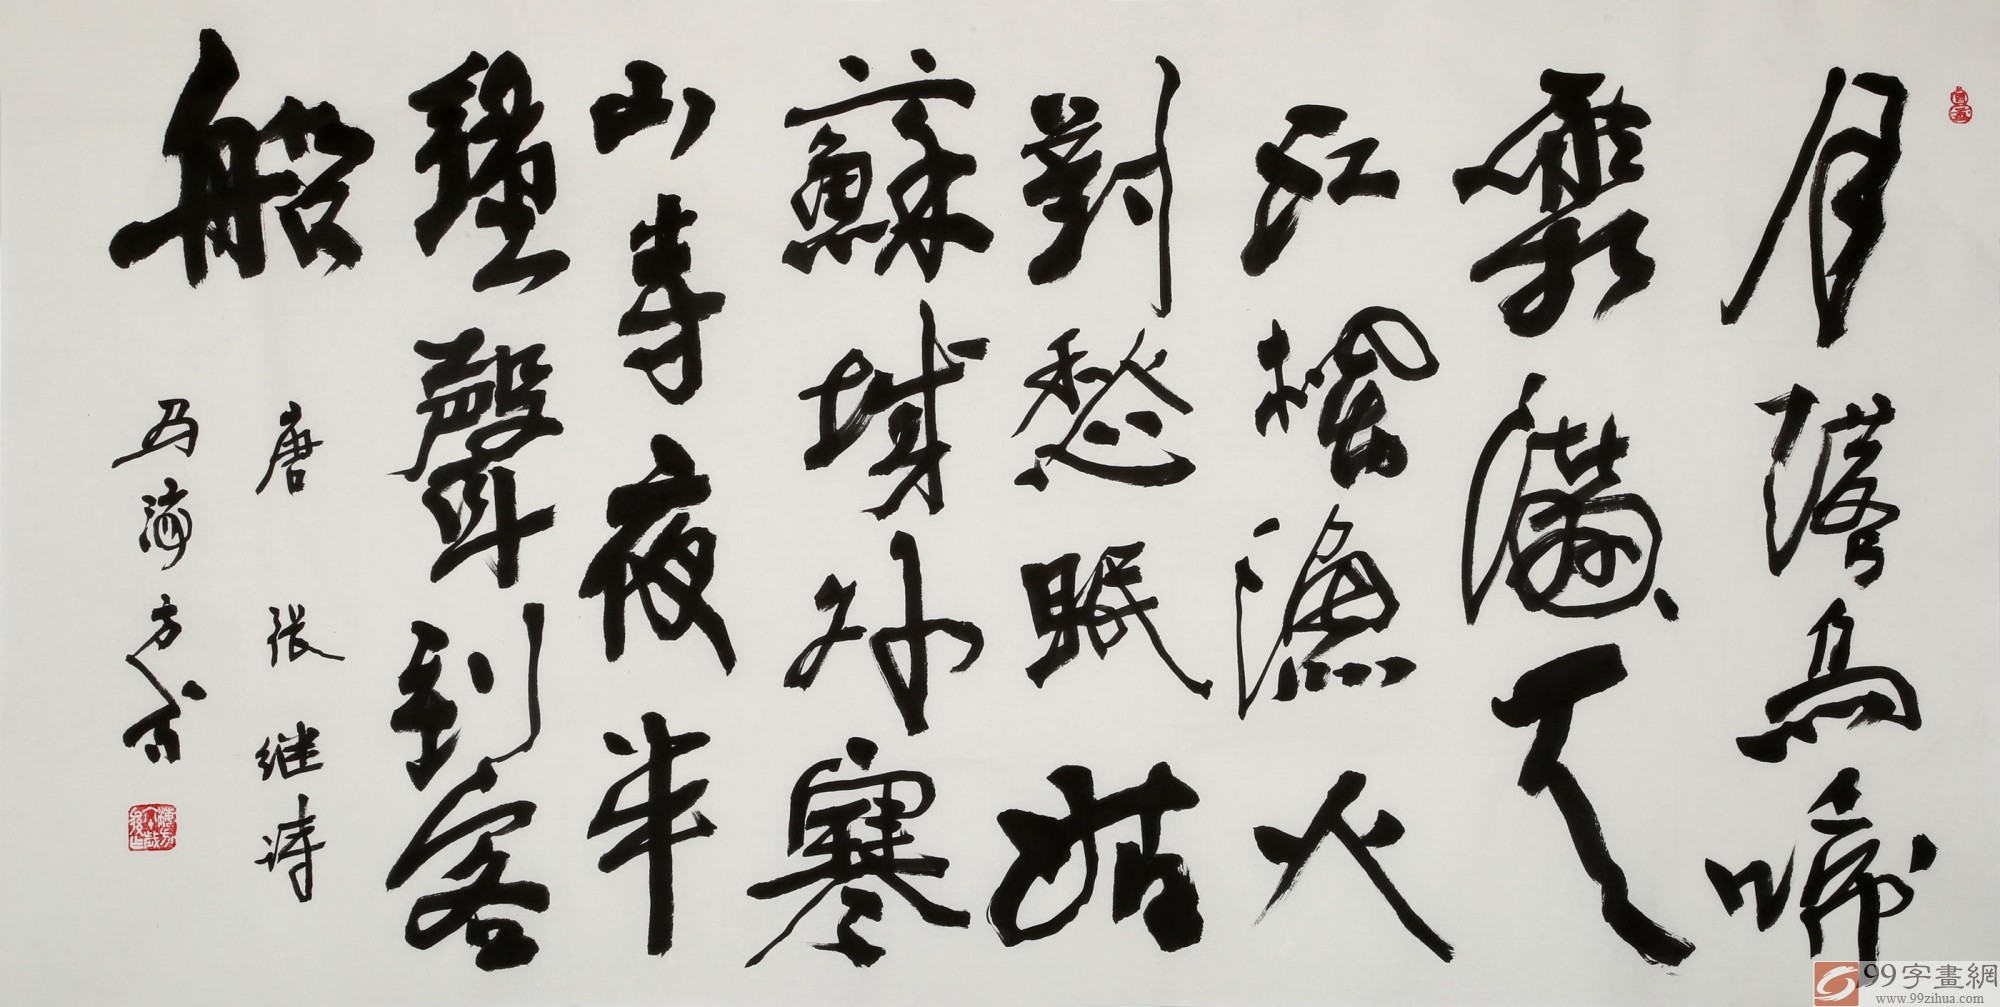 月落烏啼
霜滿天
江楓漁火
對愁眠姑
蘇城外寒
山寺夜半
鐘聲到客
船
唐 张继诗
方
99字畫網
www.99zihua.com